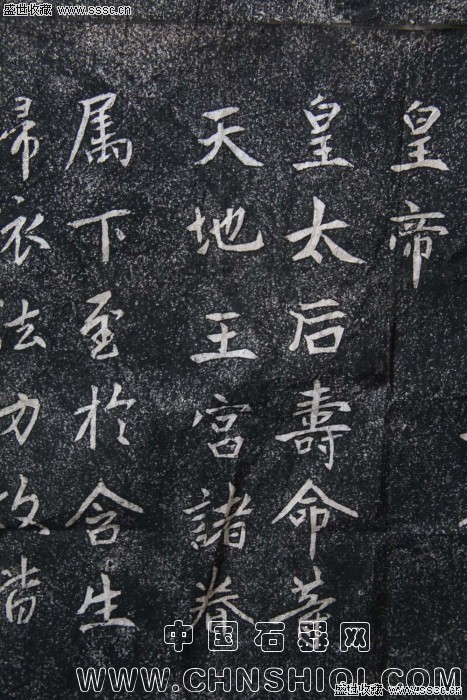 盛世收藏 www.sssc.cn
盛世收藏 www.sssc.cn
皇帝
皇太后壽命等
天地王宮諸眷
属下至於含生
歸依法力故皆
中国石器网
WWW.CHNSHIQI.COM
盛世收藏 www.sssc.cn